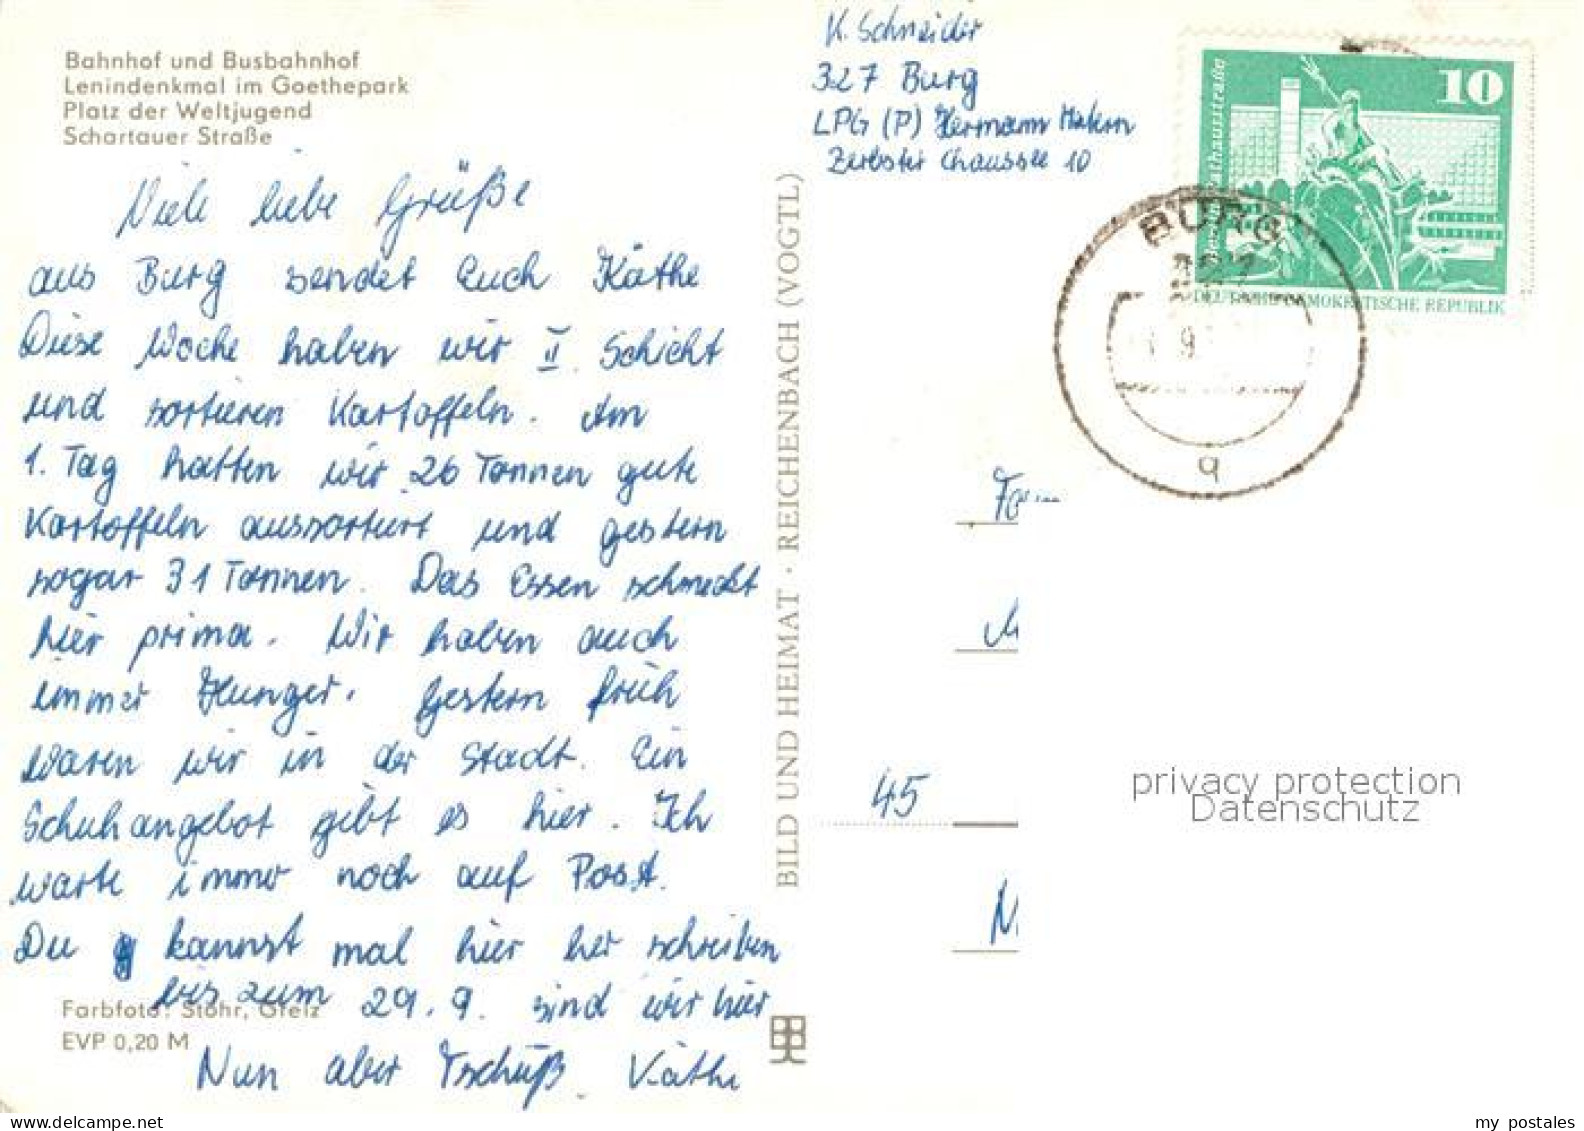 Bahnhof und Busbahnhof
Lenindenkmal im Goethepark
Platz der Weltjugend
Schartauer Straße
Viele liebe Grüße
aus Burg sendet Euch Käthe
Diese Woche haben wir II. Schicht
und sortieren Kartoffeln. Am
1. Tag hatten wir 26 Tonnen gute
Kartoffeln aussortiert und gestern
sogar 31 Tonnen. Das Essen schmeckt
hier prima. Wir haben auch
immer Hunger. Gestern früh
waren wir in der Stadt. Ein
Schuhangebot gibt es hier. Ich
warte immer noch auf Post.
Du kannst mal hier her schreiben
bis zum 29.9. sind wir hier
Nun aber Tschüß Käthe
Farbfoto: Stöhr, Greiz
EVP 0,20 M
BILD UND HEIMAT · REICHENBACH (VOGTL)
K. Schneider
327 Burg
LPG (P) Hermann Matern
Zerbster Chaussee 10
10
DEUTSCHE DEMOKRATISCHE REPUBLIK
BURG
327
9
q
45
privacy protection
Datenschutz
my postales